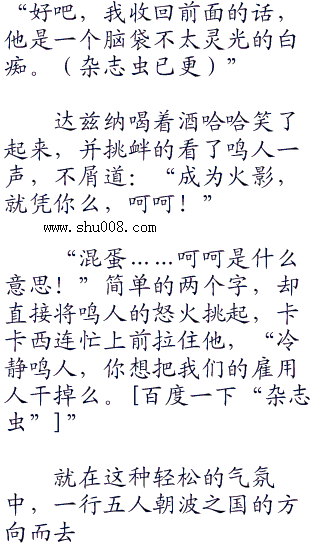 “好吧，我收回前面的话，
他是一个脑袋不太灵光的白
痴。（杂志虫已更）”
达兹纳喝着酒哈哈笑了
起来，并挑衅的看了鸣人一
声，不屑道：“成为火影，
就凭你么，呵呵！”
www.shu008.com
“混蛋……呵呵是什么
意思！”简单的两个字，却
直接将鸣人的怒火挑起，卡
卡西连忙上前拉住他，“冷
静鸣人，你想把我们的雇用
人干掉么。[百度一下“杂志
虫”]”
就在这种轻松的气氛
中，一行五人朝波之国的方
向而去